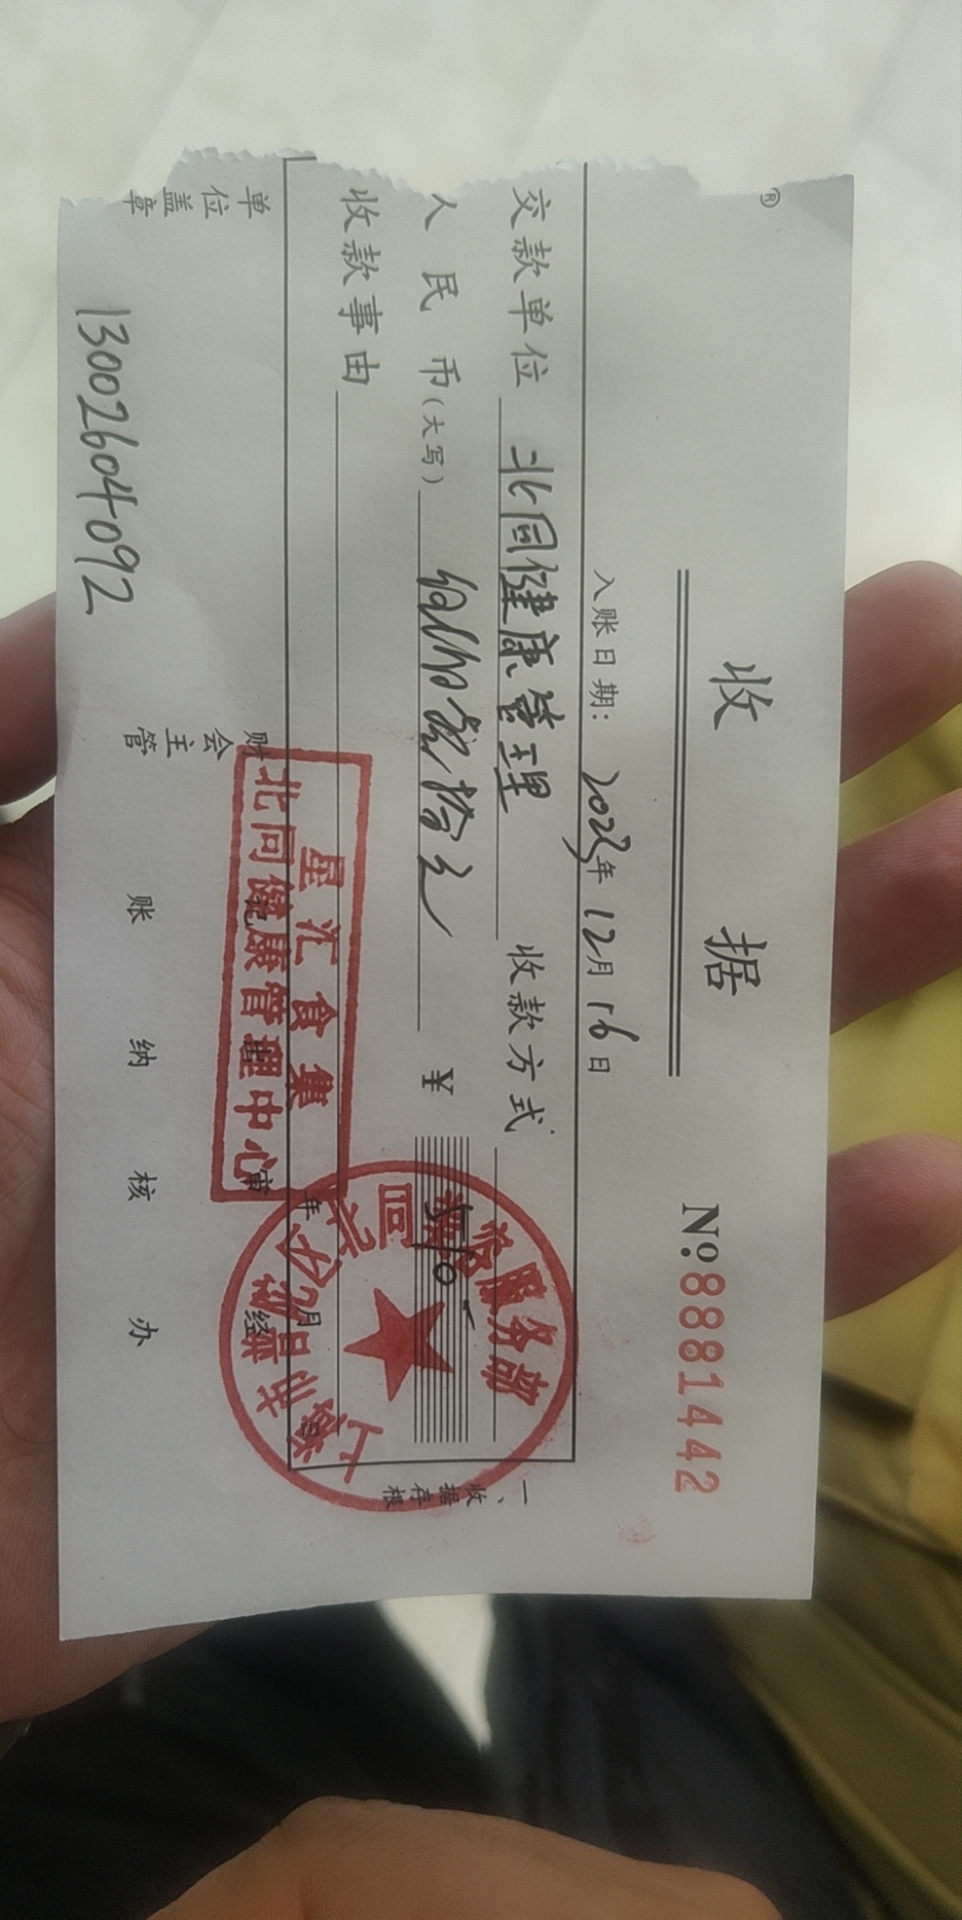 ®
收 据
No.8881442
入账日期: 2023年 12月 16日
交款单位 北同健康管理 收款方式
人民币(大写) 拾之 ¥
收款事由
星汇食集
北同健康管理中心
服务部
年 月 日
单位盖章 财会主管 账 纳 核 办
审 经
一、收据存根
13002604092